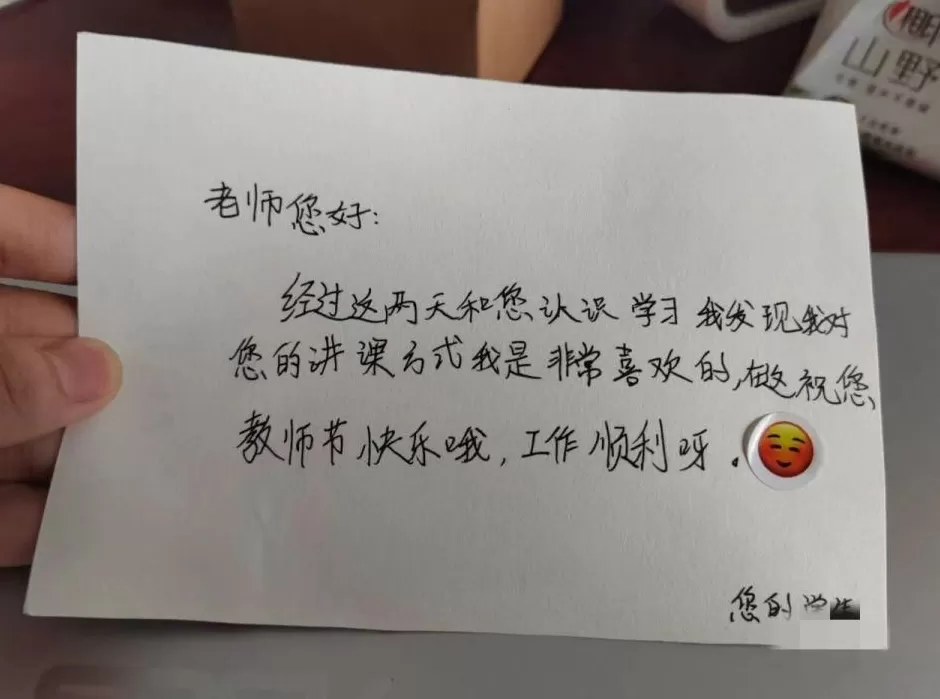 老师您好:
经过这两天和您认识学习我发现我对
您的讲课方式我是非常喜欢的,在这祝您
教师节快乐哦,工作顺利呀.
您的学生
椰
山野